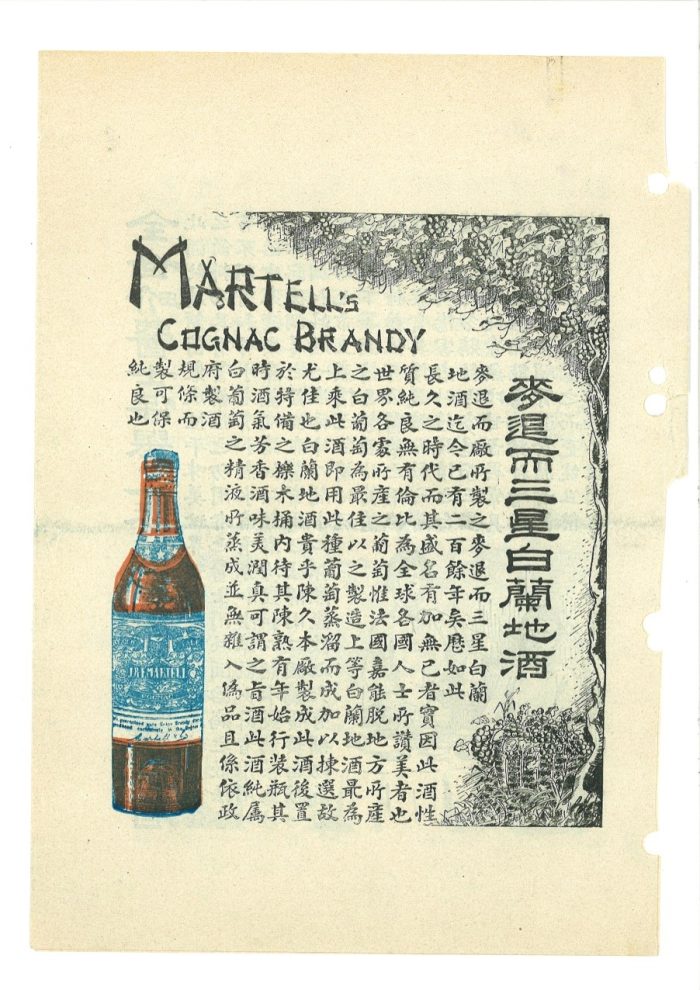 MARTELL'S
COGNAC BRANDY
麥退而三星白蘭地酒
麥退而廠所製之麥退而三星白蘭
地酒迄今已有二百餘年矣歷如此
長久之時代而其盛名有加無已者實因此酒性
質純良無有倫比為全球各國人士所讚美者也
世界各處所產之葡萄惟法國嘉能脫地方所產
之白葡萄為最佳以之製造上等白蘭地酒最為
上乘此酒即用此種葡萄蒸溜而成加以揀選故
尤佳也白蘭地酒貴乎陳久本廠製成此酒後置
於特備之櫟木桶內待其陳熟有年始行裝瓶其
時酒氣芳香酒味美潤真可謂之旨酒此酒純屬
白葡萄之精液所蒸成並無雜入偽品且係依政
府製酒
規條而
製可保
純良也
J&F MARTELL